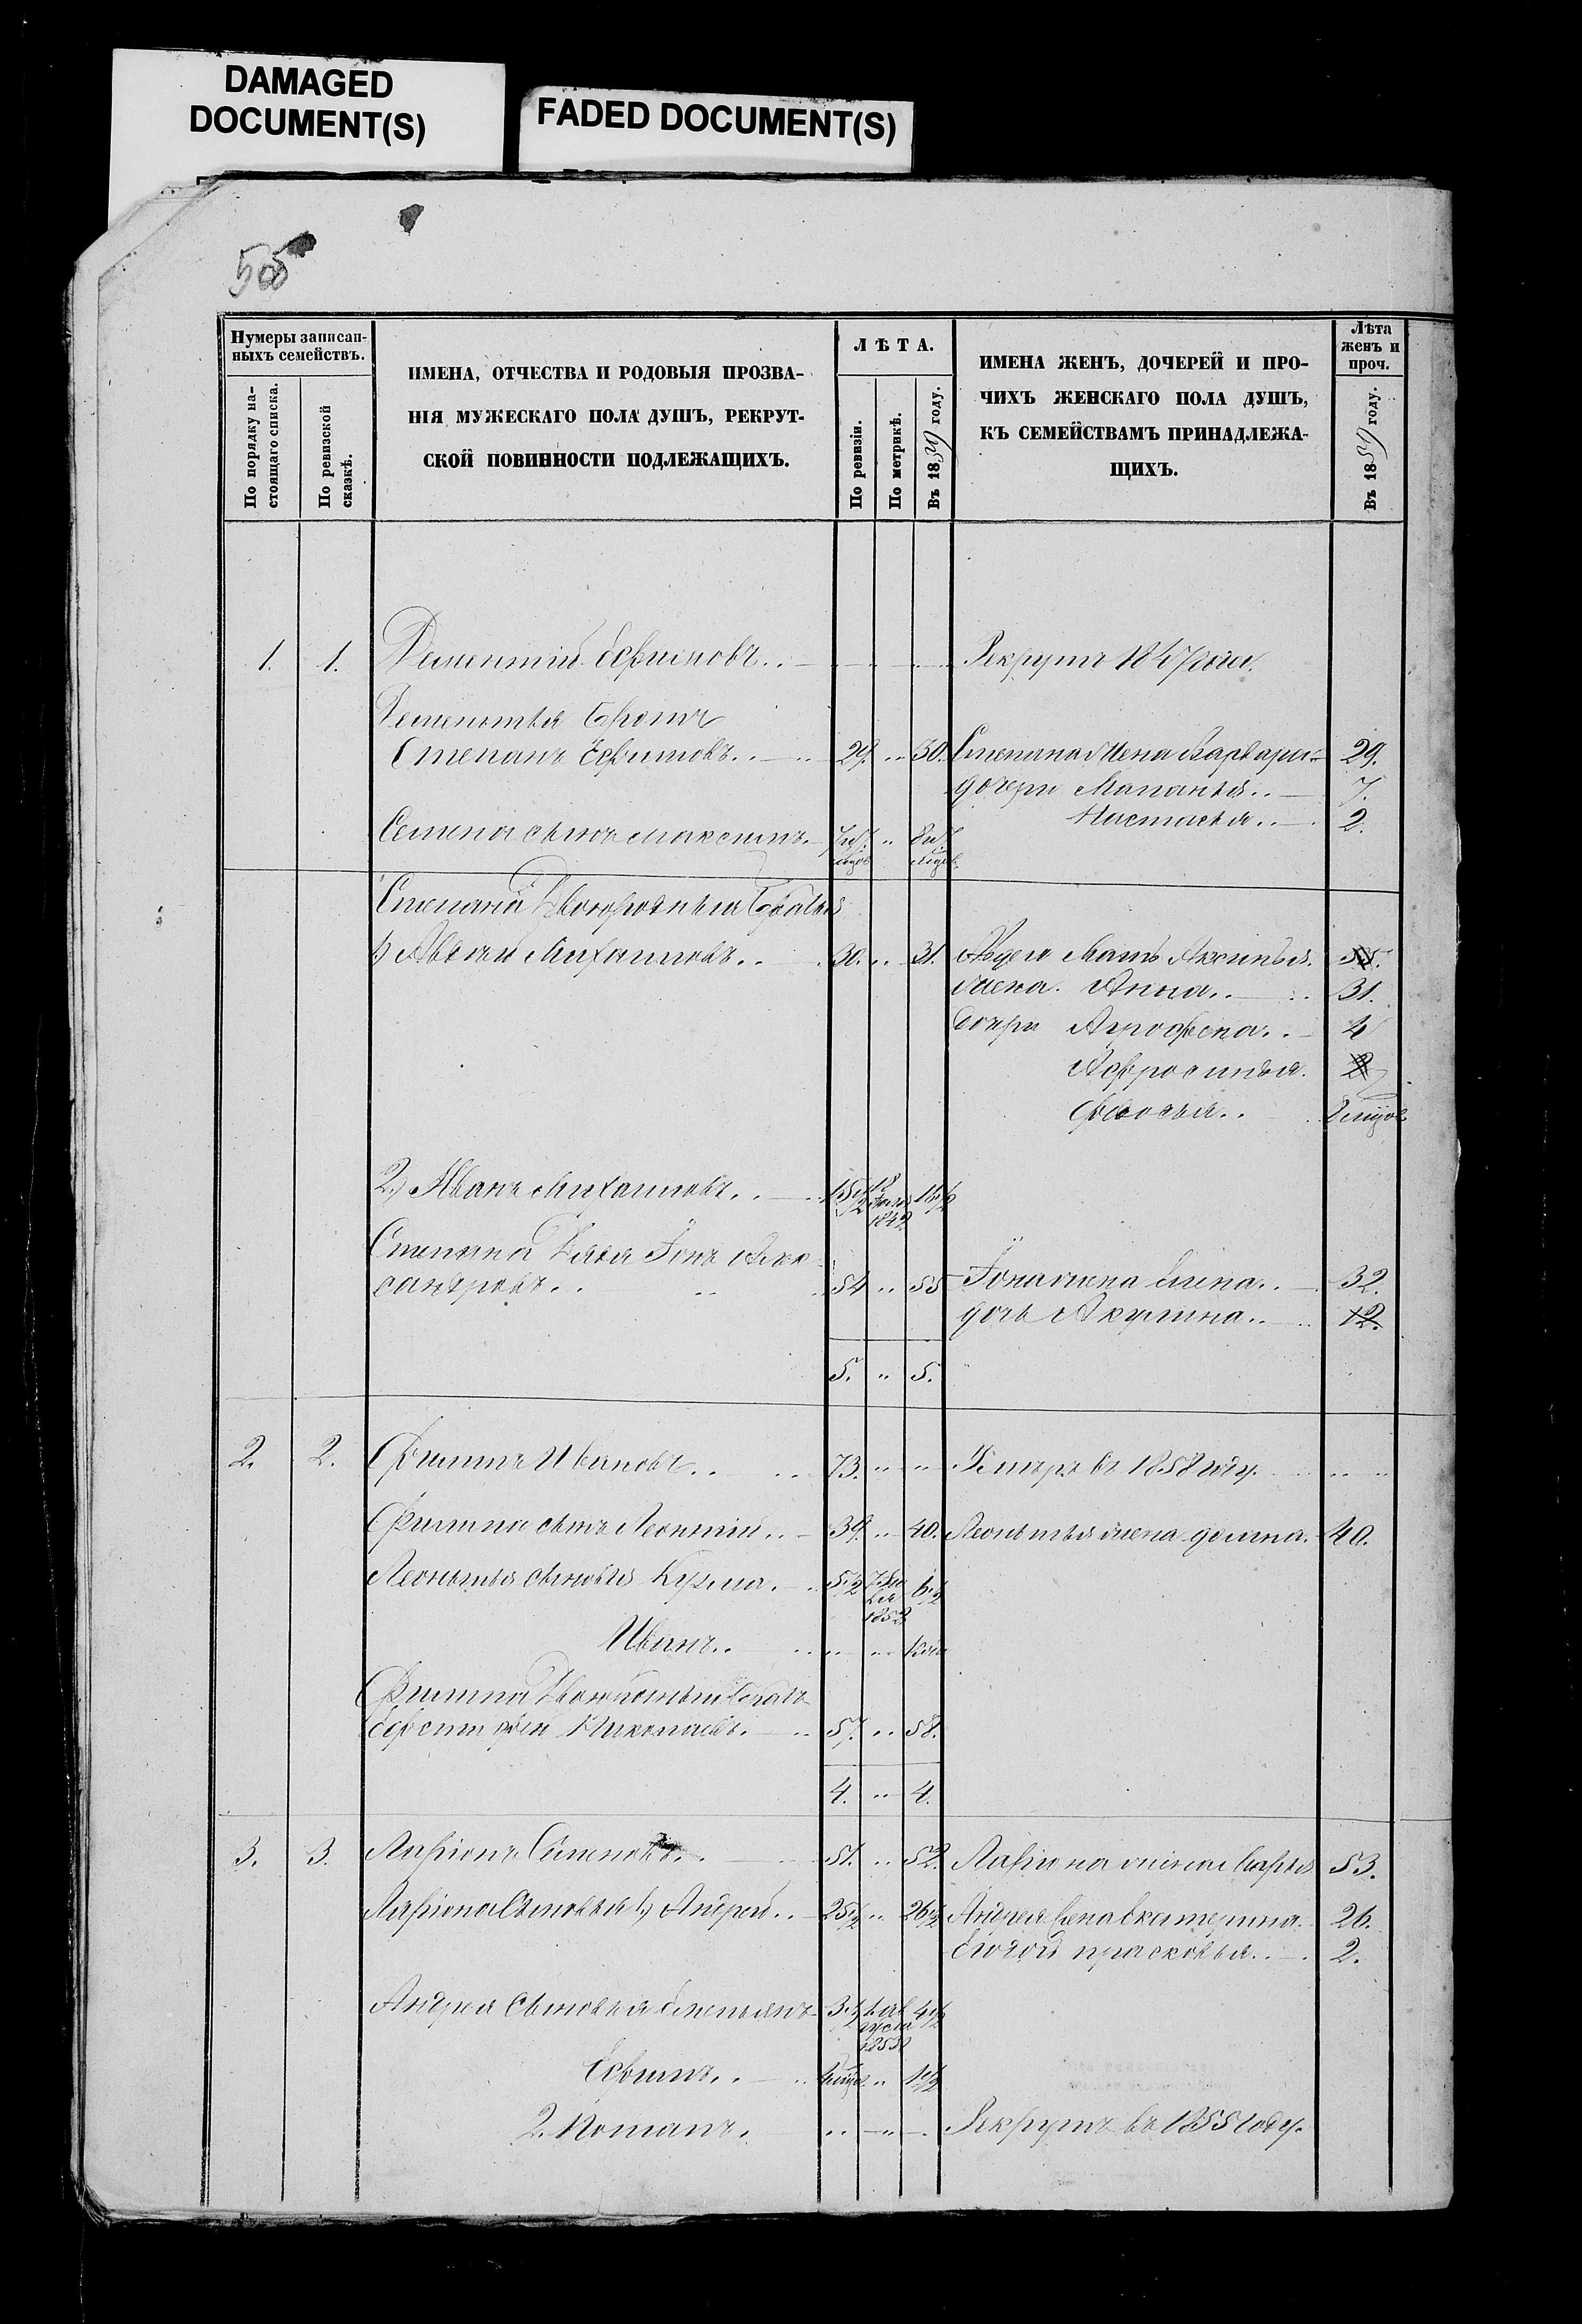 DAMAGED
DOCUMENT(S)
FADED DOCUMENT(S)
Нумеры записан-
ныхъ семействъ.
По порядку на-
стоящаго списка.
По ревизской
сказкѣ.
ИМЕНА, ОТЧЕСТВА И РОДОВЫЯ ПРОЗВА-
НІЯ МУЖЕСКАГО ПОЛА ДУШЪ, РЕКРУТ-
СКОЙ ПОВИННОСТИ ПОДЛЕЖАЩИХЪ.
ЛѢТА.
По ревизіи.
По метрикѣ.
Въ 1859 году.
ИМЕНА ЖЕНЪ, ДОЧЕРЕЙ И ПРО-
ЧИХЪ ЖЕНСКАГО ПОЛА ДУШЪ,
КЪ СЕМЕЙСТВАМЪ ПРИНАДЛЕЖА-
ЩИХЪ.
Лѣта
женъ и
проч.
Въ 1859 году.
1. 1. Дементій Ефимовъ.. Рекрутъ 1847 года.
Дементья братъ
Степанъ Ефимовъ.. 29. .. 30. Степана жена Варвара 29.
дочери Маланья.. 7.
Настасья.. 2.
сынъ Максимъ.
Степана Двоюродныя братья
1) Михайловъ.. 30. .. 31. мать Аксинья.
жена. Анна.. 31.
дочери Агрофена.. 4
Афросинья. 2
Федосья..
2) Иванъ Михайловъ.. 15½ 18 1842 16½
Степана Дядя Іонъ Алек-
сандровъ.. 54 .. 55 Іона жена Елена.. 32.
дочь Акулина.. 12.
5. .. 5.
2. 2. Филипъ Ивановъ.. 73. .. .. Умеръ въ 1858 году.
Филипа сынъ Леонтій.. 39. .. 40. Леонтья жена Домна. 40.
Леонтья сыновья Кузма. 5½ 1852 6½
Иванъ..
Филипа Двоюродный братъ
Николаевъ. 57. .. 58.
4. .. 4.
3. 3. Ларіонъ Семеновъ. 51. .. 52. Ларіона жена Марья 53.
Ларіона Сыновья 1) Андрей.. 25½ .. 26½ Андрея жена Екатерина. 26.
Прасковья.. 2.
Андрея Сыновья Емельянъ 3½ 4½
Ефимъ.. 1½
2. Романъ. Рекрутъ въ 1855 году.